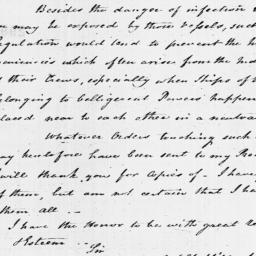 Besides the danger of infection
may be exposed by those vessels, such
regulation would tend to prevent the
conveniencies which often arise from the
their Crews, especially when Ships of
belonging to belligerent Powers happen
placed near to each other in a neutral
Whatever Orders touching such
may heretofore have been sent to my
will thank you for Copies of. I have
of them, but am not certain that I ha
them all.—
I have the Honor to be with great
Esteem —
Sir